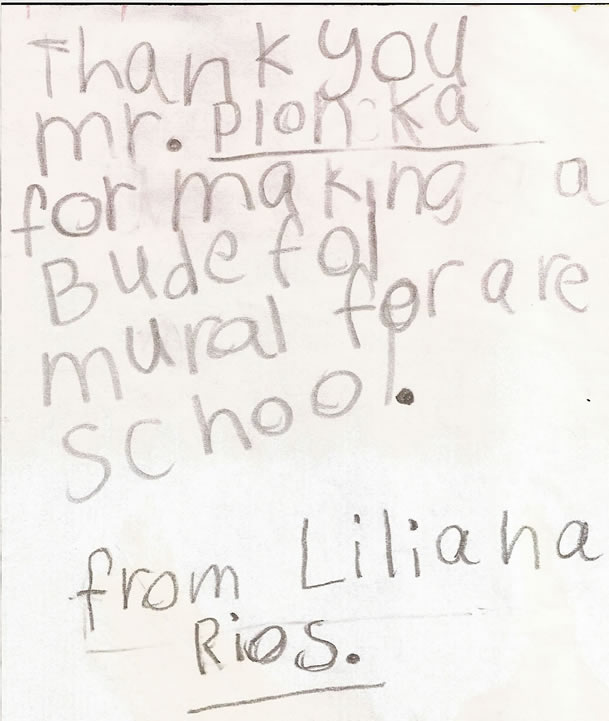 Thank you
mr. pionka
for making a
Budefol
mural for are
school.
from Liliana
Rios.